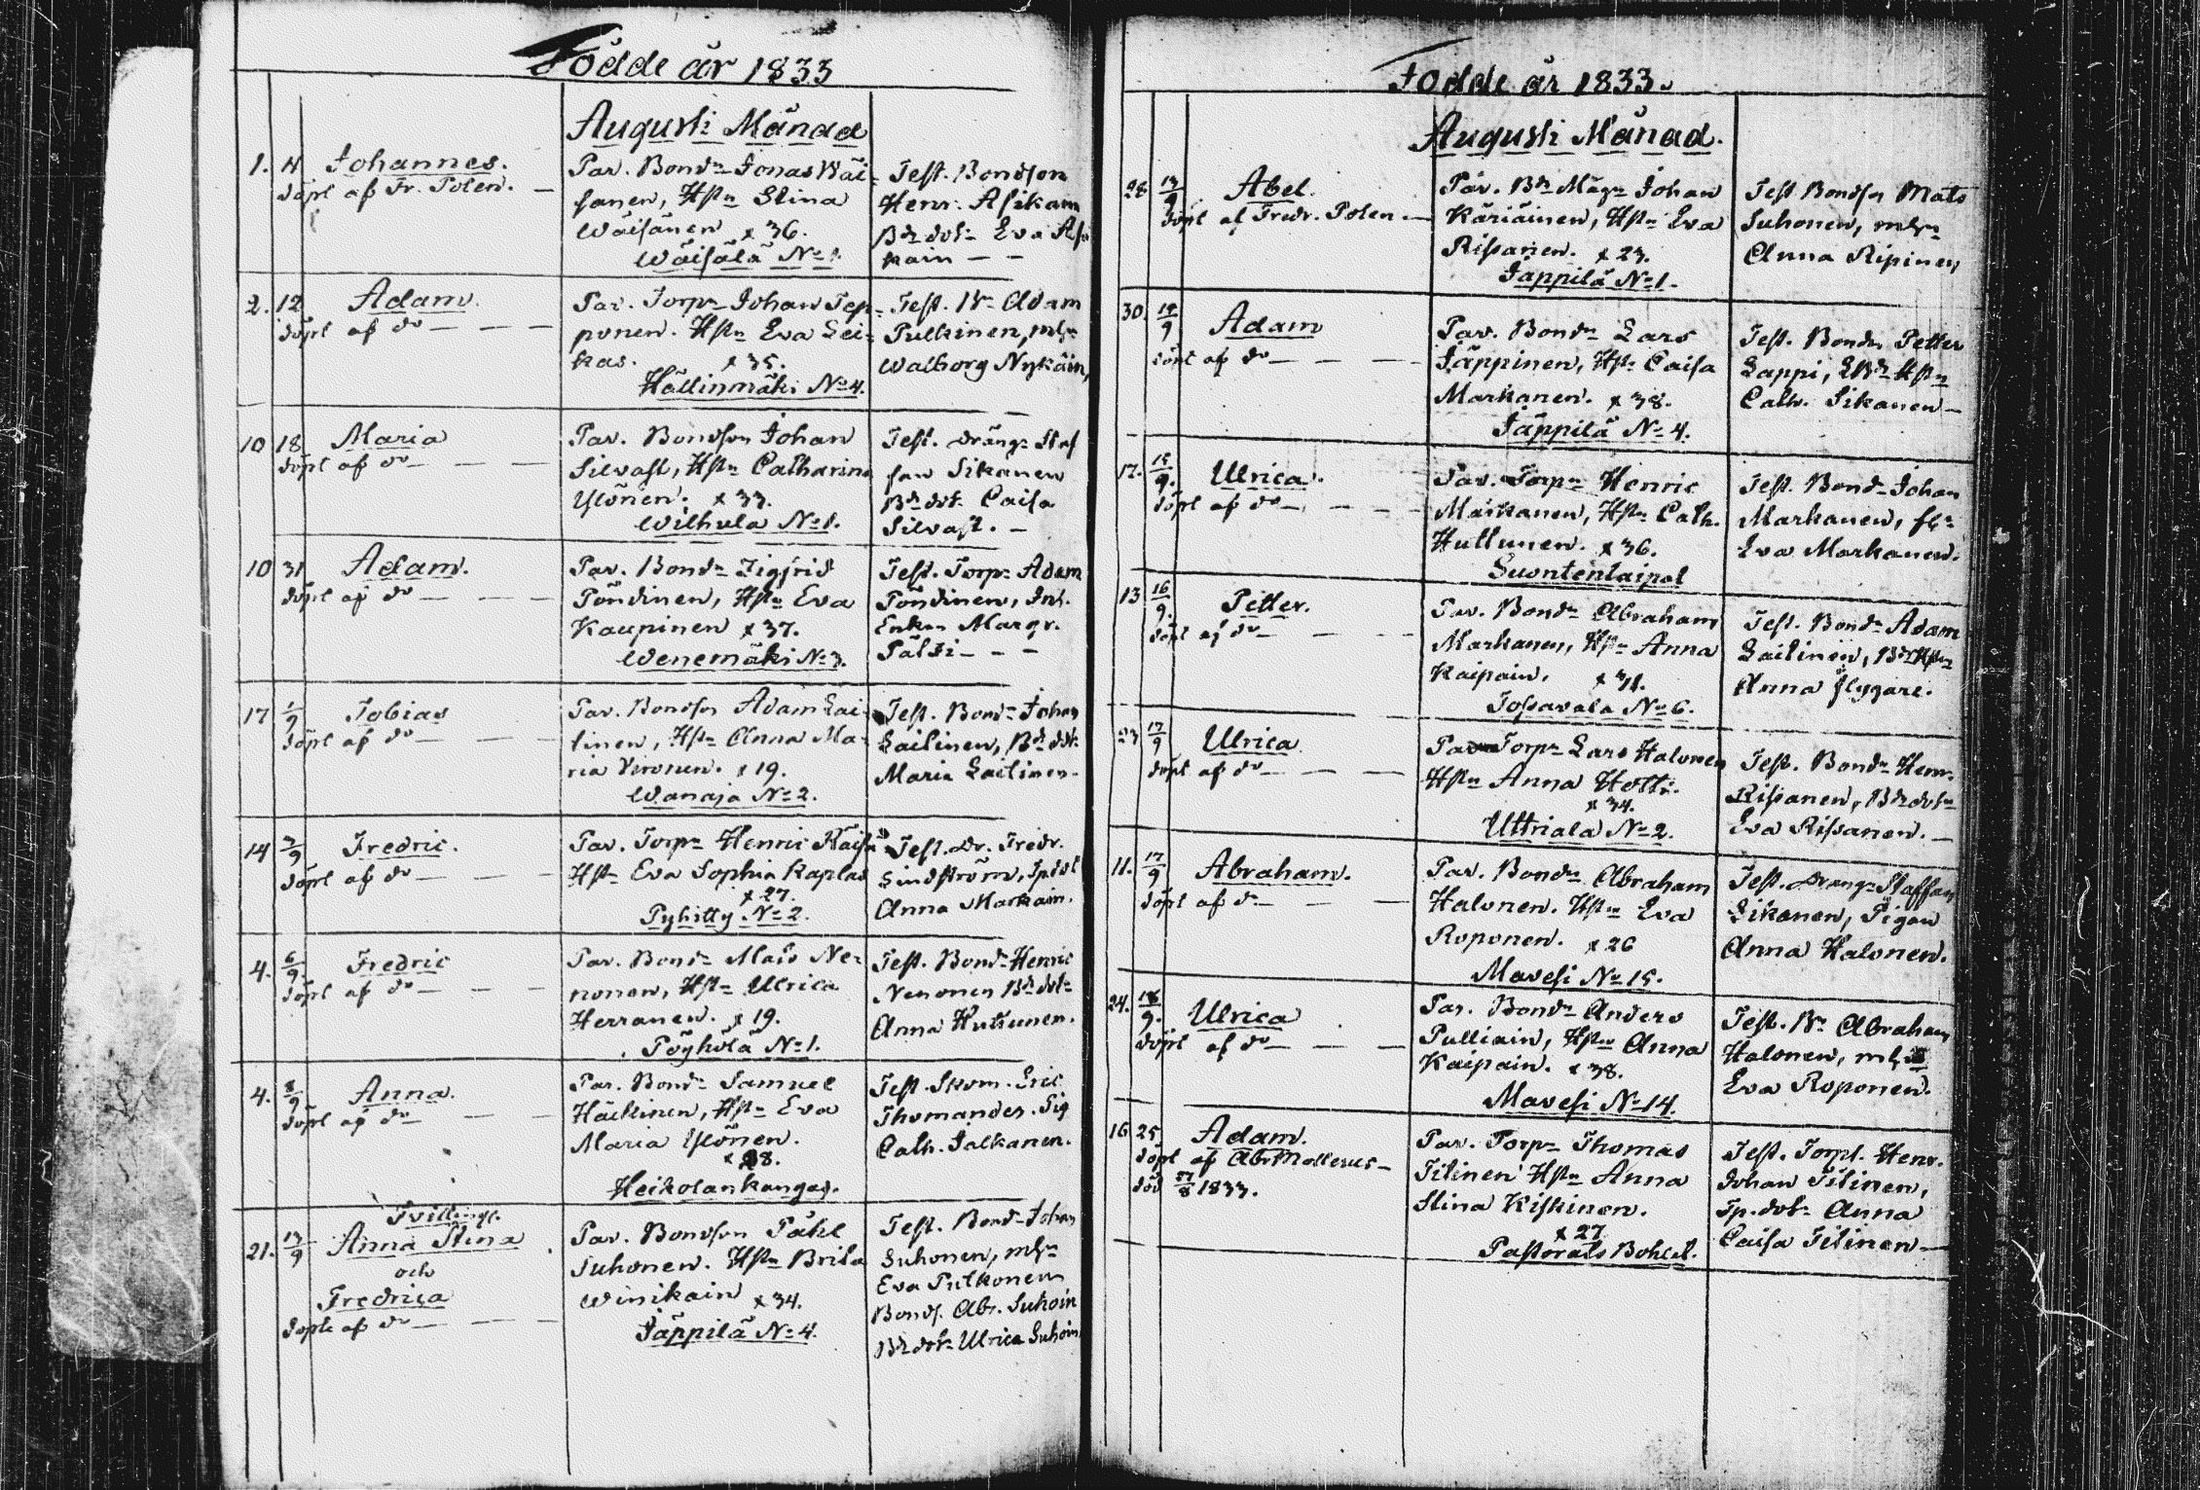 Födde år 1833
Augusti Månad
1. 4 Johannes.
döpt af Fr. Polen. —
Par. Bondn Jonas Wäi-
sänen, Hstn Stina
Wäisänen x 36.
Wäisälä No 1.
Test. Bondson
Henr. Asikain
Bdr dotr Eva Asi
kain — —
2. 12 Adam.
döpt af do — — —
Par. Torpn Johan Tep-
ponen. Hstn Eva Lei-
kas. x 35.
Hällinmäki No 4.
Test. Bn Adam
Pulkinen, mhn
Walborg Nykäin,
10 18 Maria
döpt af do — — —
Par. Bondson Johan
Silvast, Hstn Catharina
Ylönen. x 33.
Wilhula No 1.
Test. Dräng Staf
fan Sikanen
Bdr dotr Caisa
Silvast. —
10 31 Adam.
döpt af do — — —
Par. Bondn Sigfrid
Pöndinen, Hstn Eva
Kaupinen x 37.
Wenemäki No 3.
Test. Torpn Adam
Pöndinen, Inh.
Enkan Margr.
Pälsi — — —
17 1/9 Tobias
döpt af do — — —
Par. Bondson Adam Lai-
tinen, Hstn Anna Ma-
ria Vironen. x 19.
Wanaja No 2.
Test. Bondn Johan
Laitinen, Bdr dotr
Maria Laitinen.
14 3/9 Fredric.
döpt af do — — —
Par. Torpn Henric Räisä
Hstn Eva Sophia Kaplas
x 27.
Pyhitty No 2.
Test. Dr. Fredr.
Lindström, Tpdot
Anna Markain.
4. 6/9. Fredric
döpt af do — — —
Par. Bondn Mats Ne-
nonen, Hstn Ulrica
Herranen. x 19.
Pöyhölä No 1.
Test. Bondn Henric
Nenonen Bdr dotr
Anna Huttunen.
4. 8/9 Anna.
döpt af do — —
Par. Bondn Samuel
Häckinen, Hstn Eva
Maria Ylönen.
x 28.
Heikolankangas.
Test. Skom. Eric
Thomander. Pig
Cath. Jalkanen.
Tvillingr.
21. 13/9 Anna Stina
och
Fredrica
döpte af do — — —
Par. Bondson Påhl
Suhonen. Hstn Brita
Winikain x 34.
Jäppilä No 4.
Test. Bondn Johan
Suhonen, mhn
Eva Pulkonen
Bonds. Abr. Suhoin
Bdr dotr Ulrica Suhoin
Födde år 1833.
Augusti Månad.
28 13/9 Abel.
döpt af Fredr. Polen —
Par. Bdr Mågn Johan
Käriäinen, Hstn Eva
Rissanen. x 23.
Jäppilä No 1.
Test Bondson Mats
Suhonen, mhn
Anna Ripinen,
30. 14/9 Adam
döpt af do — — —
Par. Bondn Lars
Jäppinen, Hstn Caisa
Markanen. x 38.
Jäppilä No 4.
Test. Bondn Petter
Lappi, EBdr Hstn
Cath. Sikanen —
12. 15/9. Ulrica.
döpt af do — — —
Par. Torpn Henric
Markanen, Hstn Cath.
Huttunen. x 36.
Suontentaipal
Test. Bondn Johan
Markanen, fhn
Eva Markanen.
13 16/9. Petter.
döpt af do — — —
Par. Bondn Abraham
Markanen, Hstn Anna
Kaipain. x 31.
Tossavala No 6.
Test. Bondn Adam
Laitinen, Bdr Hstn
Anna Flygare.
23 17/9 Ulrica
döpt af do — — —
Par Torpn Lars Halonen
Hstn Anna Hotti.
x 34.
Uttriala No 2.
Test. Bondn Henr.
Rissanen, Bdr dotn
Eva Rissanen. —
11. 17/9 Abraham.
döpt af do — — —
Par. Bondn Abraham
Halonen. Hstn Eva
Roponen. x 26
Mavesi No 15.
Test. Drängn Staffan
Sikanen, Pigan
Anna Halonen.
24. 18/9. Ulrica
döpt af do — — —
Par. Bondn Anders
Pulliain, Hstn Anna
Kaipain. x 38.
Mavesi No 14.
Test. Bn Abraham
Halonen, mhn
Eva Roponen.
16 25 Adam.
döpt af Abr Mollerus —
död 31/8 1833.
Par. Torpn Thomas
Titinen Hstn Anna
Stina Kiskinen.
x 27
Pastorats Bohlet.
Test. Torpt. Henr.
Johan Titinen,
Tp. dotr Anna
Caisa Titinen —